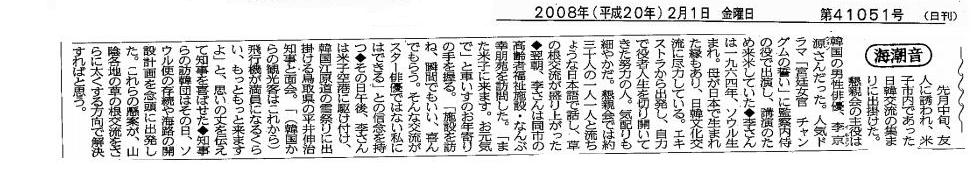 2008年(平成20年)2月1日 金曜日 第41051号 (日刊)
海潮音
先月中旬、友
人に誘われ、米
子市内であった
日韓交流の集ま
りに出掛けた。
懇親会の主役は
韓国の男性俳優、李京
源さんだった。人気ド
ラマ「宮廷女官 チャン
グムの誓い」に監察内侍
の役で出演し、講演のた
め来米していた◆李さん
は一九六四年、ソウル生
まれ。母が日本で生まれ
た縁もあり、日韓文化交
流に尽力している。エキ
ストラから出発し、自力
で役者人生を切り開いて
きた努力の人。気配りも
細やかだ。懇親会では約
三十人の一人一人と流ち
ょうな日本語で話し、草
の根交流が盛り上がった
◆翌朝、李さんは同市の
高齢者福祉施設・なんぶ
幸朋苑を訪問した。「ま
た米子に来ます。お元気
で」と車いすのお年寄り
の手を握る。「施設を訪
ね、瞬間でもいい、喜ん
でもらう。そんな交流が
スター俳優ではない私に
はできる」との信念を持
つ◆その日の午後、李さん
は米子空港に駆け付け、
韓国江原道の雪祭りに出
掛ける鳥取県の平井伸治
知事と面会。「(韓国か
らの観光客は)これから
飛行機が満員になるくら
い、もっともっと来ます
よ」と、思いの丈を伝え
て知事を喜ばせた◆知事
らの訪韓団はその日、ソ
ウル便の存続や海路の開
設計画を念頭に出発し
た。これらの懸案が、山
陰各地の草の根交流をさ
らに太くする方向で解決
すればと思う。